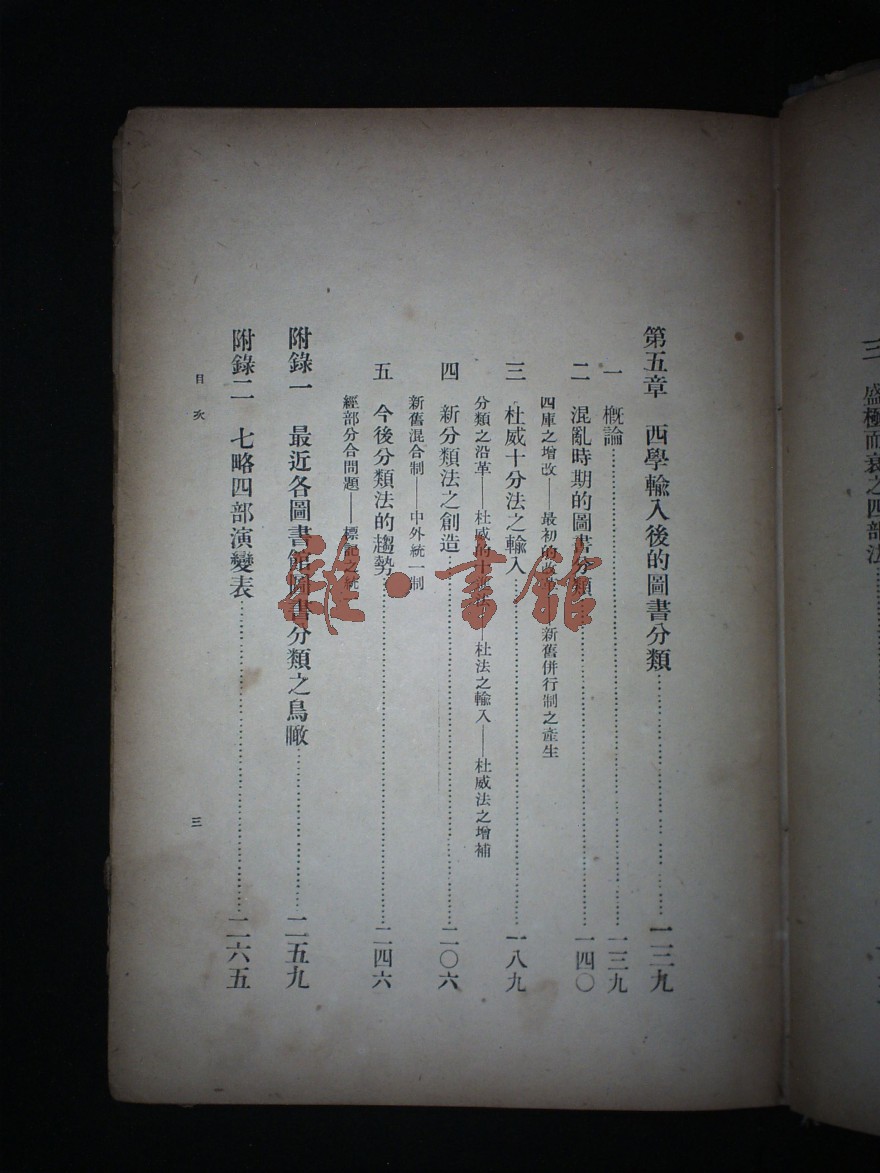 三 盛極而衰之四部法
第五章 西學輸入後的圖書分類 一三九
一 概論 一三九
二 混亂時期的圖書分類 一四〇
四庫之增改——最初的 新舊併行制之產生
三 杜威十分法之輸入 一八九
分類之沿革——杜威的十 ——杜法之輸入——杜威法之增補
四 新分類法之創造 二〇六
新舊混合制——中外統一制
五 今後分類法的趨勢 二四六
經部分合問題——標記之
附錄一 最近各圖書館圖書分類之鳥瞰 二五九
附錄二 七略四部演變表 二六五
目次
三
雜·書館